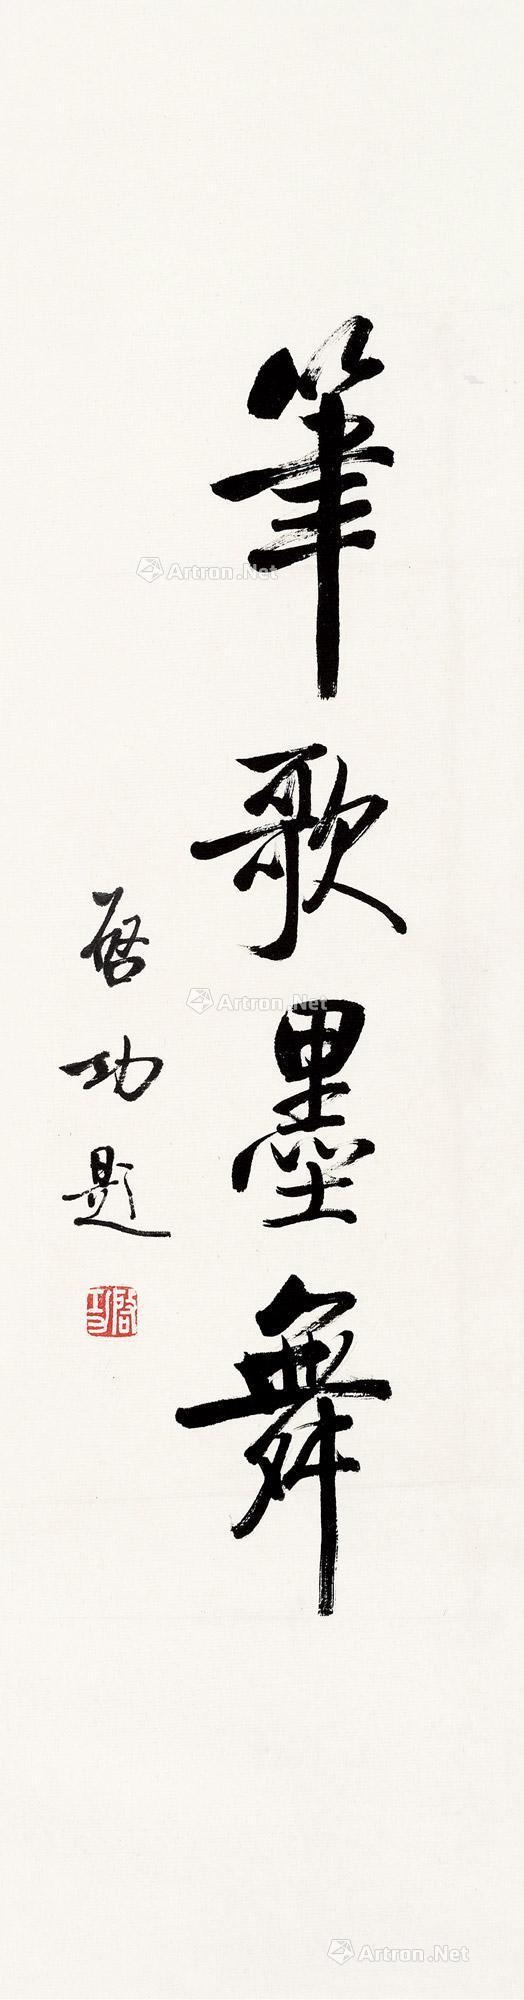 筆歌墨舞
啓功題
啓功
Artron.Net
Artron.Net
Artron.Net